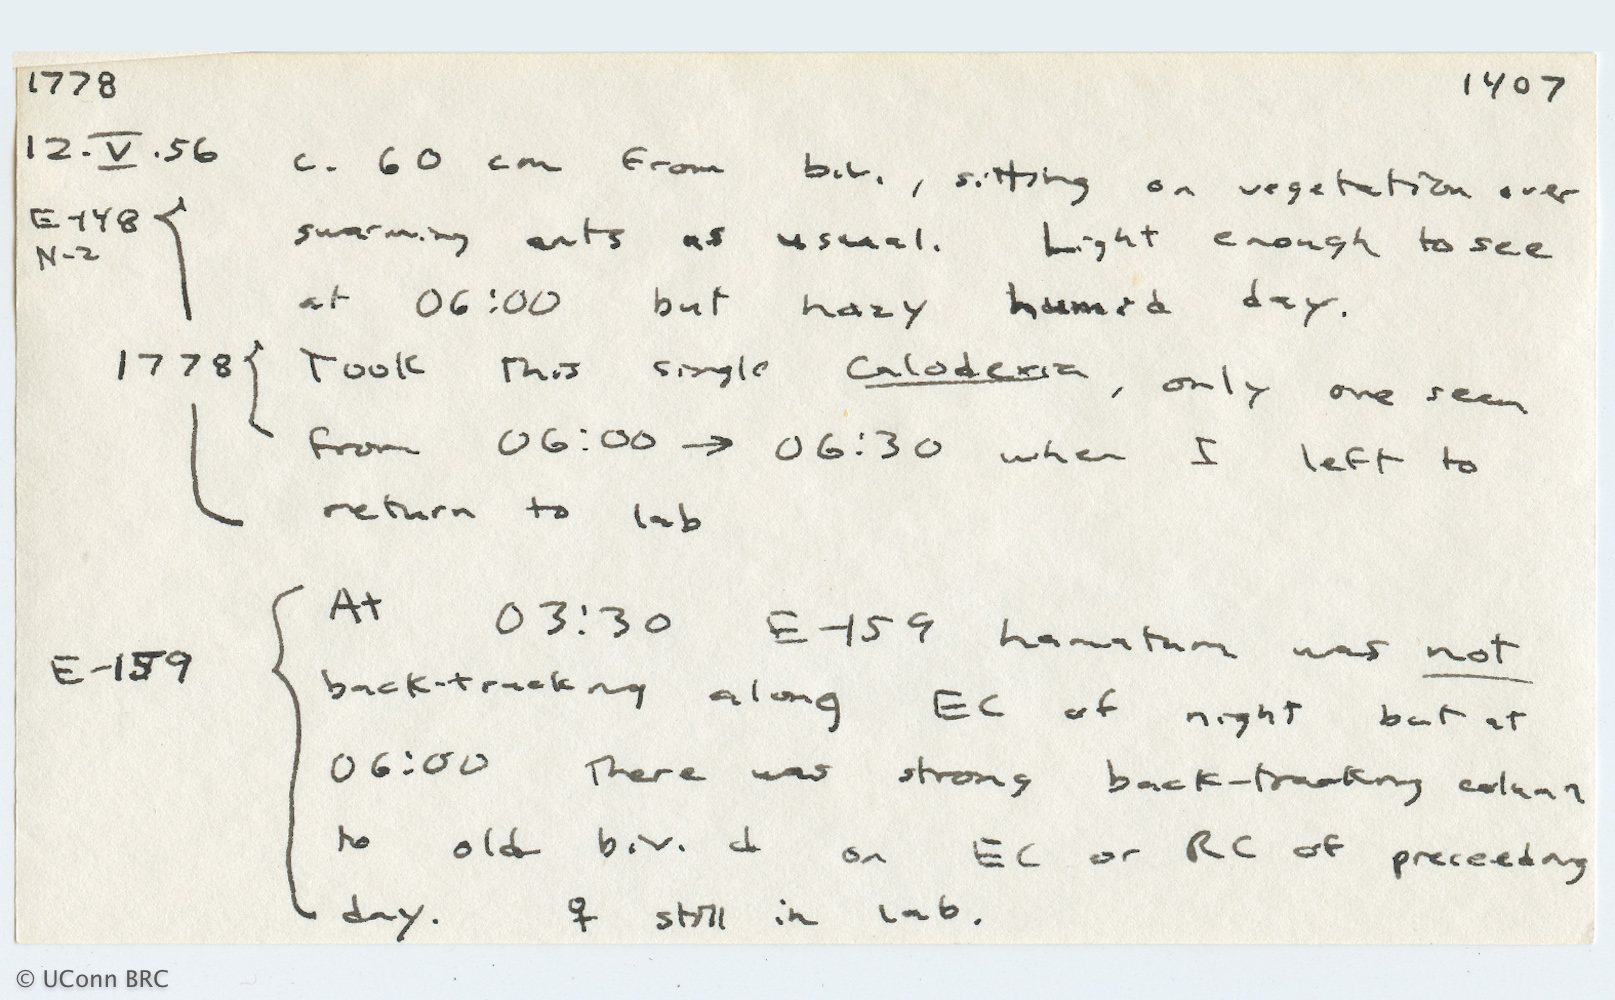 1778 1407
12.V.56 c. 60 cm from biv., sitting on vegetation over
E-148 swarming ants as usual. Light enough to see
N-2
at 06:00 but hazy humid day.
1778 Took this single Calodexia, only one seen
from 06:00 → 06:30 when I left to
return to lab
At 03:30 E-159 hamatum was not
E-159 back-tracking along EC of night but at
06:00 there was strong back-tracking column
to old biv. & on EC or RC of preceeding
day. ♀ still in lab.
© UConn BRC